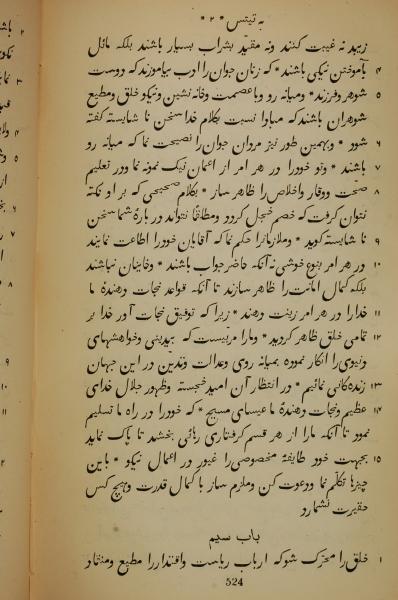 به تیتس * ۲ *
زیبد نه غیبت کنند ونه مقید بشراب بسیار باشند بلکه مائل
۴ بآموختن نیکی باشند * که زنان جوان را ادب بیاموزند که دوست
۵ شوهر وفرزند * ومیانه رو وباعصمت وخانه نشین ونیکو خلق ومطیع
شوهران باشند که مبادا نسبت بکلام خدا سخن نا شایسته گفته
۶ شود * وبهمین طور نیز مردان جوان را نصیحت نما که میانه رو
۷ باشند * وتو خود را در هر امر از اعمال نیک نمونه نما ودر تعلیم
۸ صحت ووقار واخلاص را ظاهر ساز * بکلام صحیحی که بر او نکته
نتوان گرفت که خصم خجل گردد ومطلقا نتواند در بارهٔ شما سخن
۹ نا شایسته گوید * وملازمانرا حکم نما که آقایان خود را اطاعت نمایند
۱۰ در هر امر بنوع خوشی نه آنکه حاضر جواب باشند * وخاینان نباشند
بلکه کمال امانت را ظاهر سازند تا آنکه قواعد نجات دهندهٔ ما
۱۱ خدا را در هر امر زینت دهند * زیرا که توفیق نجات آور خدا بر
۱۲ تمامی خلق ظاهر گردید * ومارا مربیست که بیدینی وخواهشهای
دنیوی را انکار نموده بمیانه روی وعدالت وتدین در این جهان
۱۳ زنده کانی نمائیم * در انتظار آن امید خجسته وظهور جلال خدای
۱۴ عظیم ونجات دهندهٔ ما عیسای مسیح * که خود را در راه ما تسلیم
نمود تا آنکه مارا از هر قسم گرفتاری رهائی بخشد تا پاک نماید
۱۵ بجهت خود طایفهٔ مخصوصی را غیور در اعمال نیکو * باین
چیزها تکلم نما ودعوت کن وملزم ساز با کمال قدرت وهیچ کس
حقیرت نشمارد
باب سیم
۱ خلق را محرک شو که ارباب ریاست واقتدار را مطیع ومنقاد
524